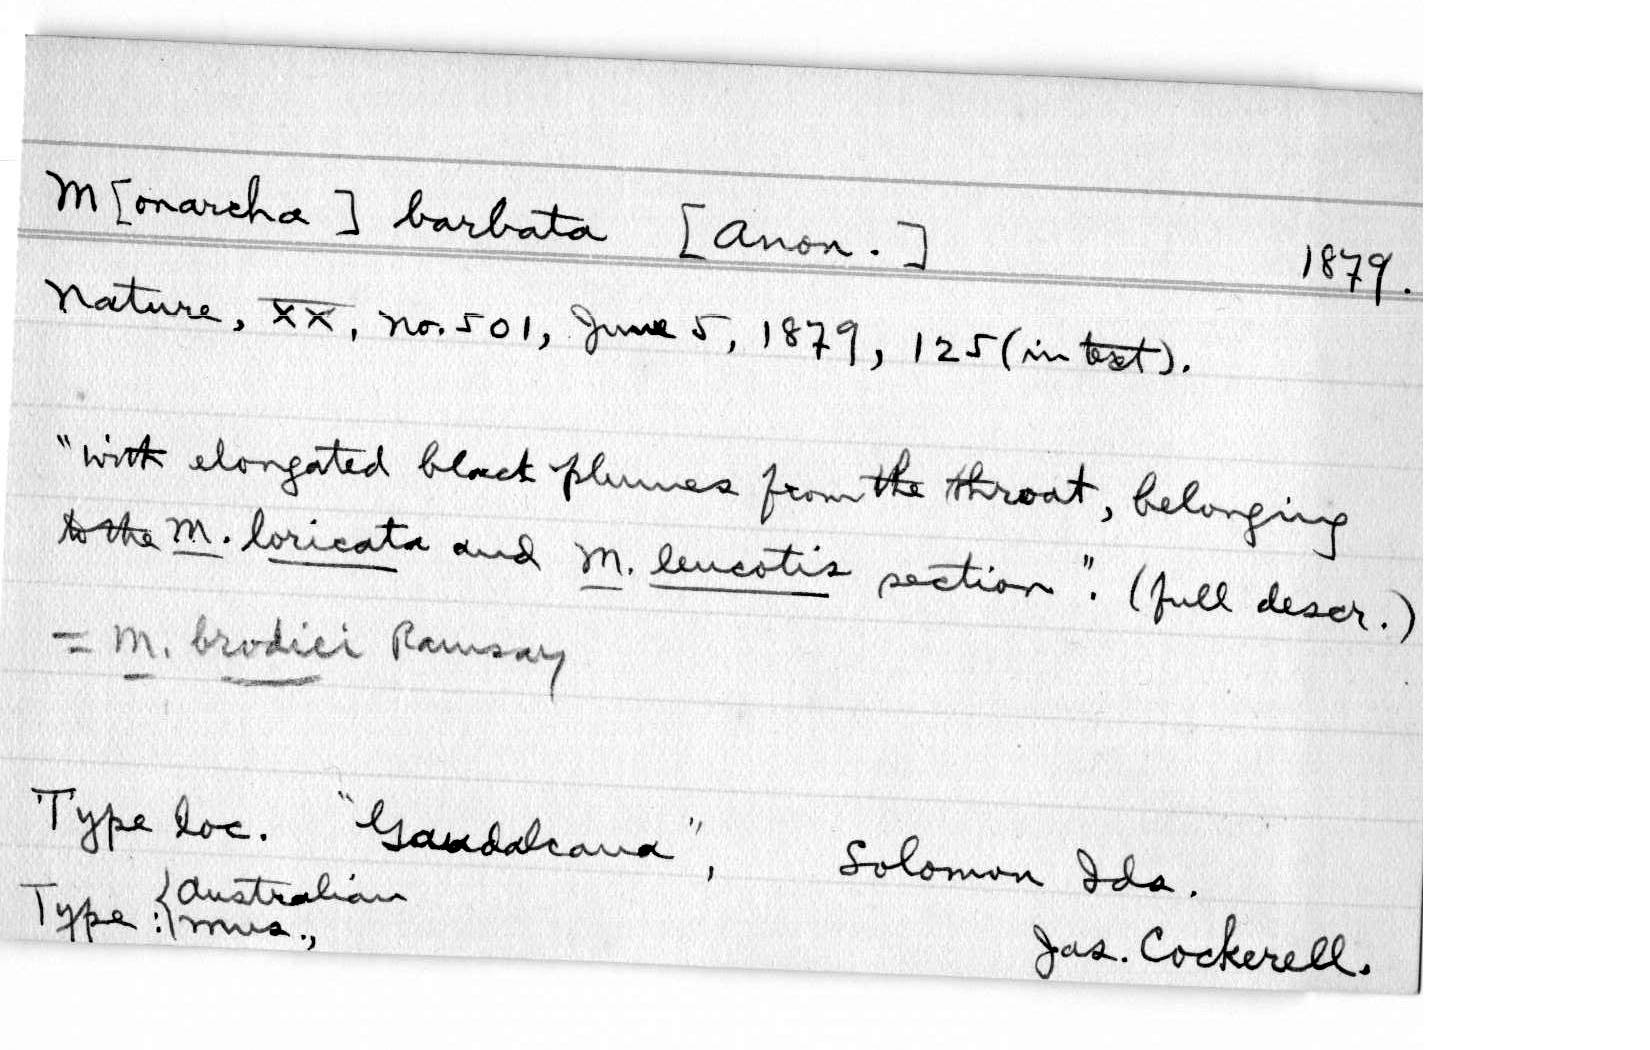 M[onarcha] barbata [Anon.] 1879.
Nature, XX, no. 501, June 5, 1879, 125 (in text).
"with elongated black plumes from the throat, belonging
to the M. loricata and M. leucotis section". (full descr.)
= M. brodiei Ramsay
Type loc. "Gaudalcana", Solomon Ids.
Type: { Australian
Mus., Jas. Cockerell.